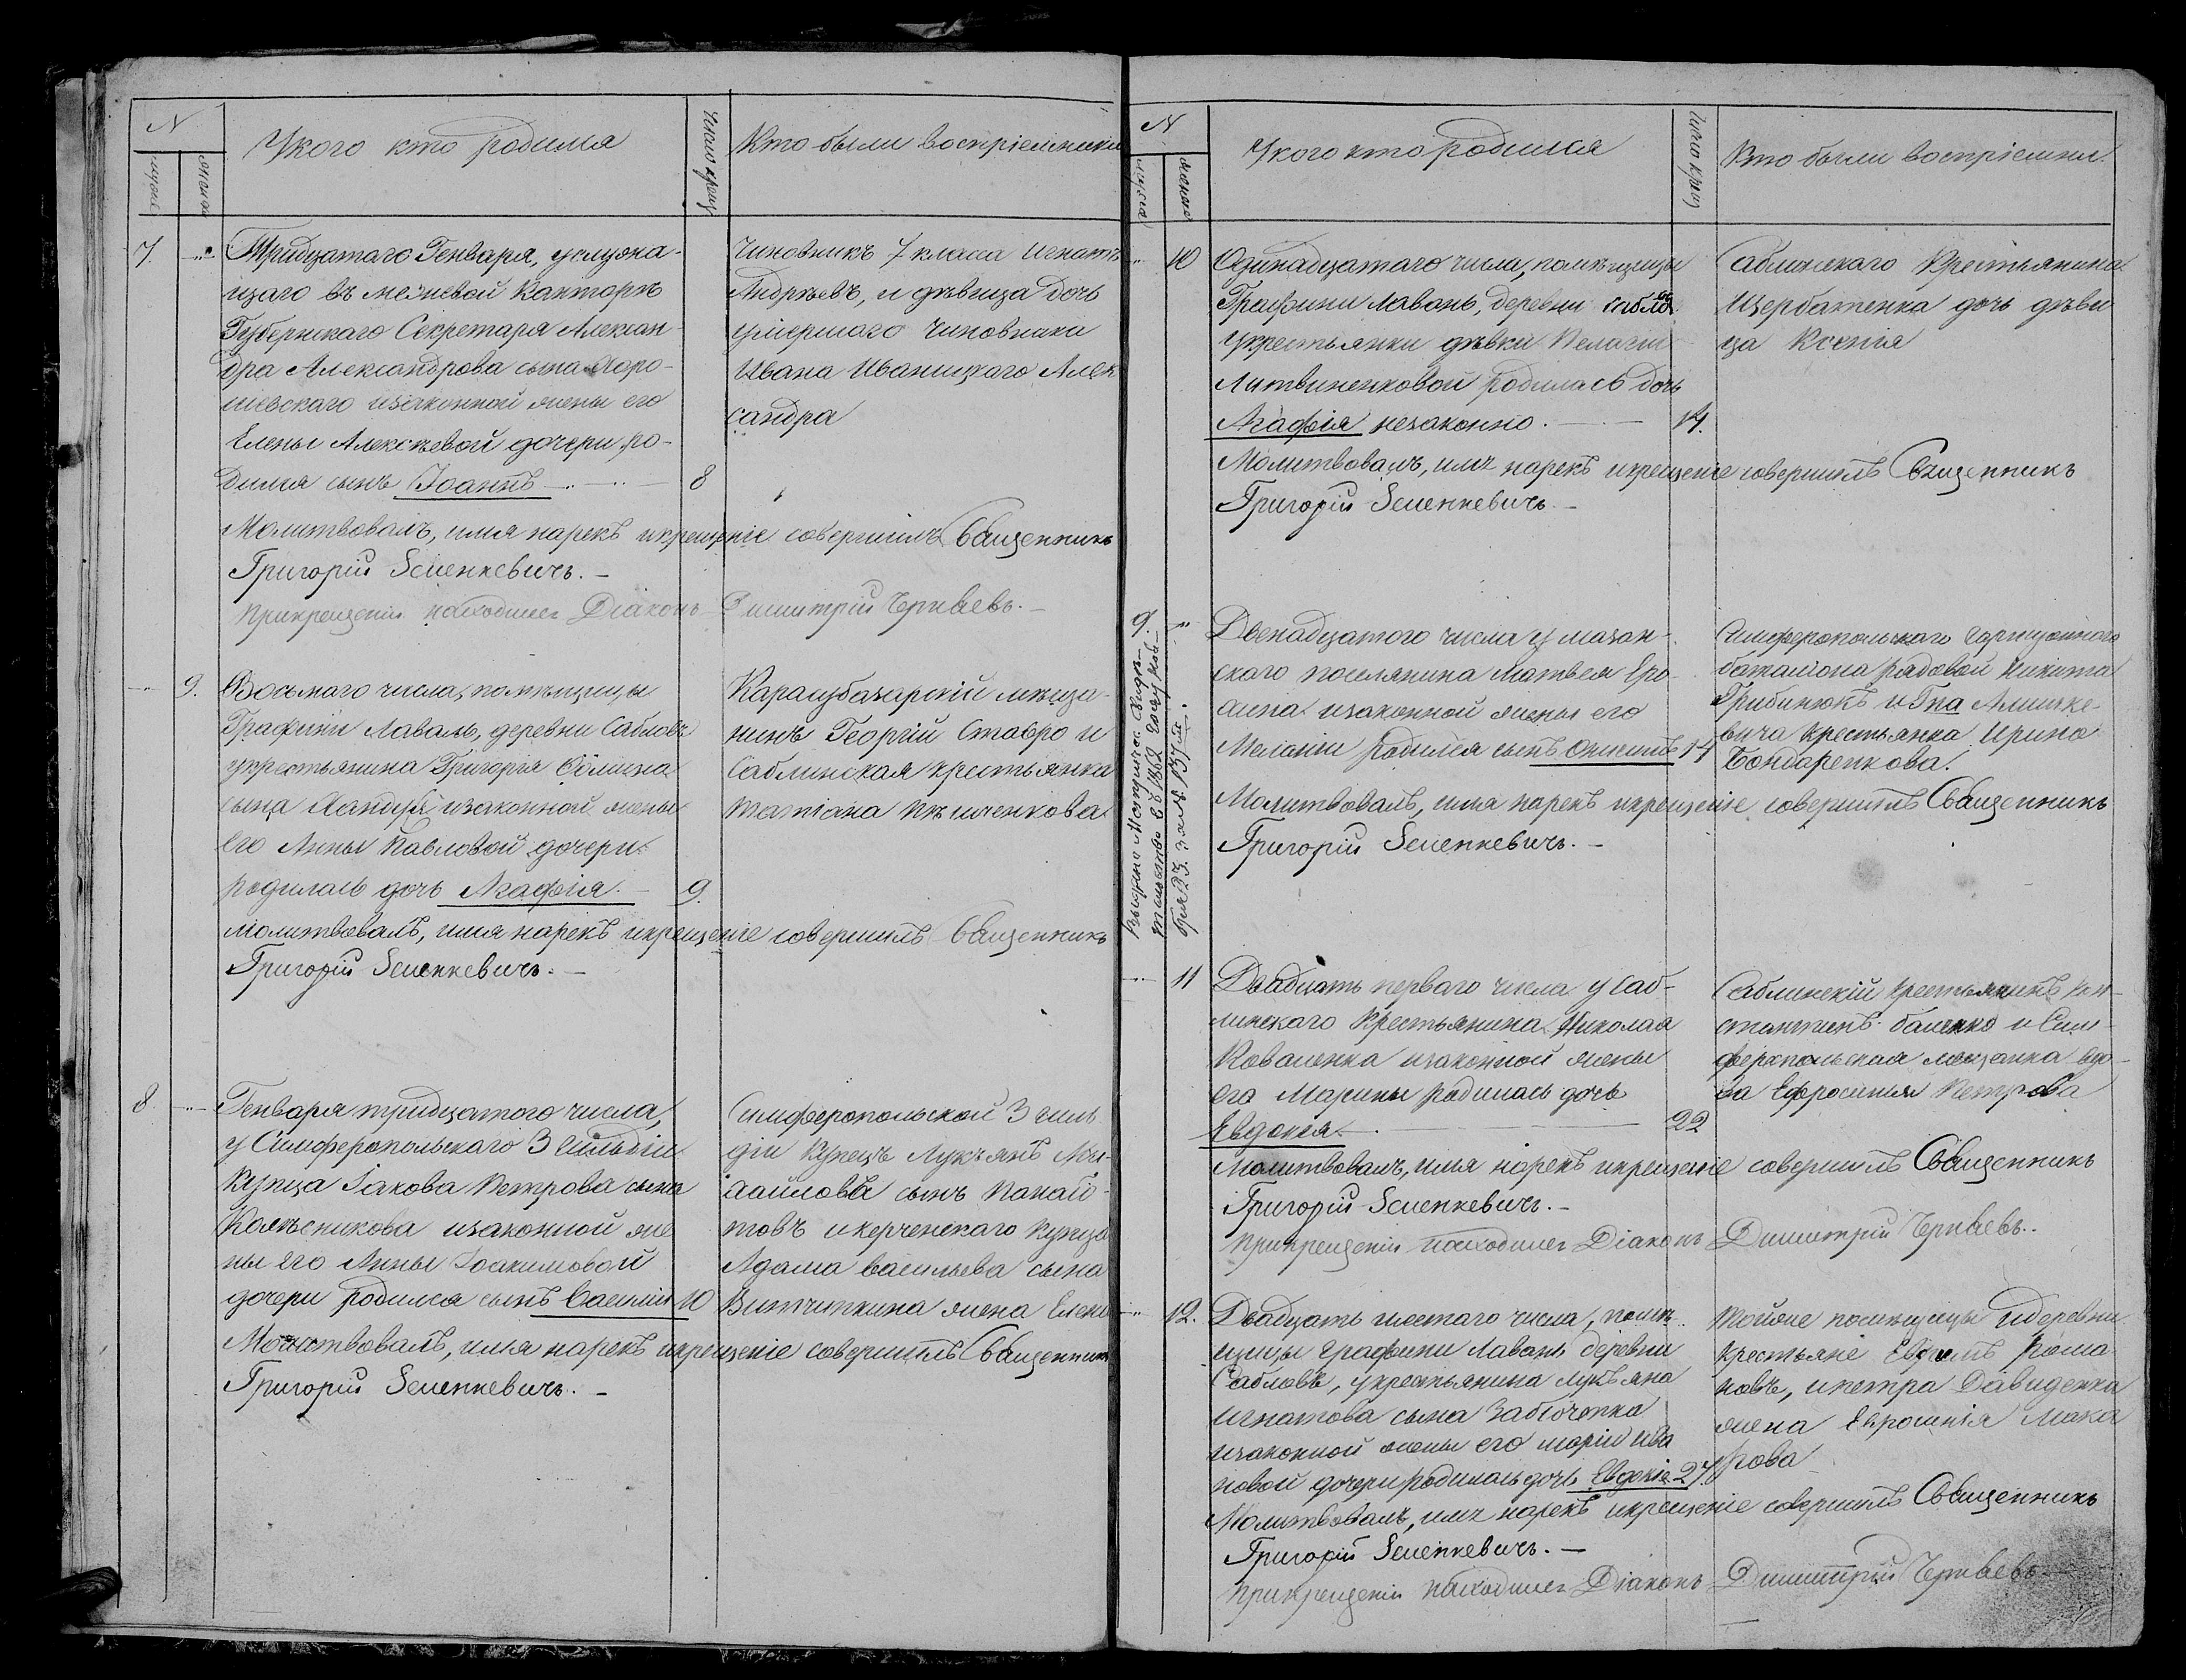 N
мужс
женск
У кого кто родился
Число крещ
Кто были воспріемники
7.
Тридцатаго Генваря, у служа-
щаго въ межевой Конторѣ
Губернскаго Секретаря Алексан-
дра Александрова сына
шевскаго и законной жены его
Елены Алексѣевой дочери ро-
дился сынъ Іоаннъ
8
Чиновникъ 7 класса Игнатъ
Андрѣевъ, и дѣвица дочь
умершаго Чиновника
Ивана Иваницкаго Алек
сандра
Молитвовалъ, имя нарекъ и крещеніе совершилъ Священникъ
Григорій Семенкевичъ. –
При крещеніи находился Діаконъ Димитрій Чернаевъ. –
9.
Восьмаго числа, помѣщицы
Графини Лаваль, деревни Сабловъ
у крестьянина Григорія
сына и законной жены
его Анны Павловой дочери
родилась дочь Агафія. –
9.
Карасубазарскій мѣща-
нинъ Георгій Ставро и
Саблинская крестьянка
Татіана
Молитвовалъ, имя нарекъ и крещеніе совершилъ Священникъ
Григорій Семенкевичъ. –
8
Генваря тридцатого числа,
у Симферопольскаго 3 Гильдіи
Купца Іакова Петрова сына
Колѣсникова и законной же
ны его Анны Іоакимовой
дочери родился сынъ Василій
10
Симферопольской 3 гиль
діи Купецъ Лукъянъ Ми-
хайловъ сынъ Панаіо-
товъ и керченскаго Купца
Адама Васильева сына
жена Елена
Молитвовалъ, имя нарекъ и крещеніе совершилъ Священникъ
Григорій Семенкевичъ. –
N
мужск
женск
У кого кто родился
Число крещ
Кто были воспріемник.
10
Одинадцатаго числа, помѣщицы
Графини Лаваль, деревни Сабловъ
у крестьянки дѣвки Пелагіи
Литвиненковой родилась дочь
Агафія незаконно.
14.
Саблинскаго Крестьянина
Щербатенка дочь дѣви
ца Ксенія
Молитвовалъ, имя нарекъ и крещеніе совершилъ Священникъ
Григорій Семенкевичъ. –
9.
Двенадцатого числа у мазан-
скаго поселянина Матвея Еро-
хина и законной жены его
Меланіи родился сынъ
14
Симферопольскаго гарнизоннаго
баталіона рядовой Никита
Грибинюкъ и Гна
вича крестьянка Ирина
Бондаренкова.
Молитвовалъ, имя нарекъ и крещеніе совершилъ Священникъ
Григорій Семенкевичъ. –
11
Двадцать перваго числа у Саб-
линскаго Крестьянина Николая
Коваленка и законной жены
его Марины родилась дочь
Евдокія.
22
Саблинскій Крестьянинъ Кон-
стантинъ и Сим-
феропольская мещанка вдо-
ва Ефросинія Петрова
Молитвовалъ, имя нарекъ и крещеніе совершилъ Священникъ
Григорій Семенкевичъ. –
При крещеніи находился Діаконъ Димитрій Чернаевъ. –
12.
Двадцать шестаго числа, помѣ-
щицы Графини Лаваль деревни
Сабловъ, у крестьянина Лукъяна
Игнатова сына
и законной жены его Маріи Ива
новой дочери родилась дочь Евдокія
27.
Тойже помѣщицы и деревни
Крестьяне Евфимъ Рома
новъ, и петра Давиденка
жена Евросинія Мака
рова
Молитвовалъ, имя нарекъ и крещеніе совершилъ Священникъ
Григорій Семенкевичъ. –
При крещеніи находился Діаконъ Димитрій Чернаевъ